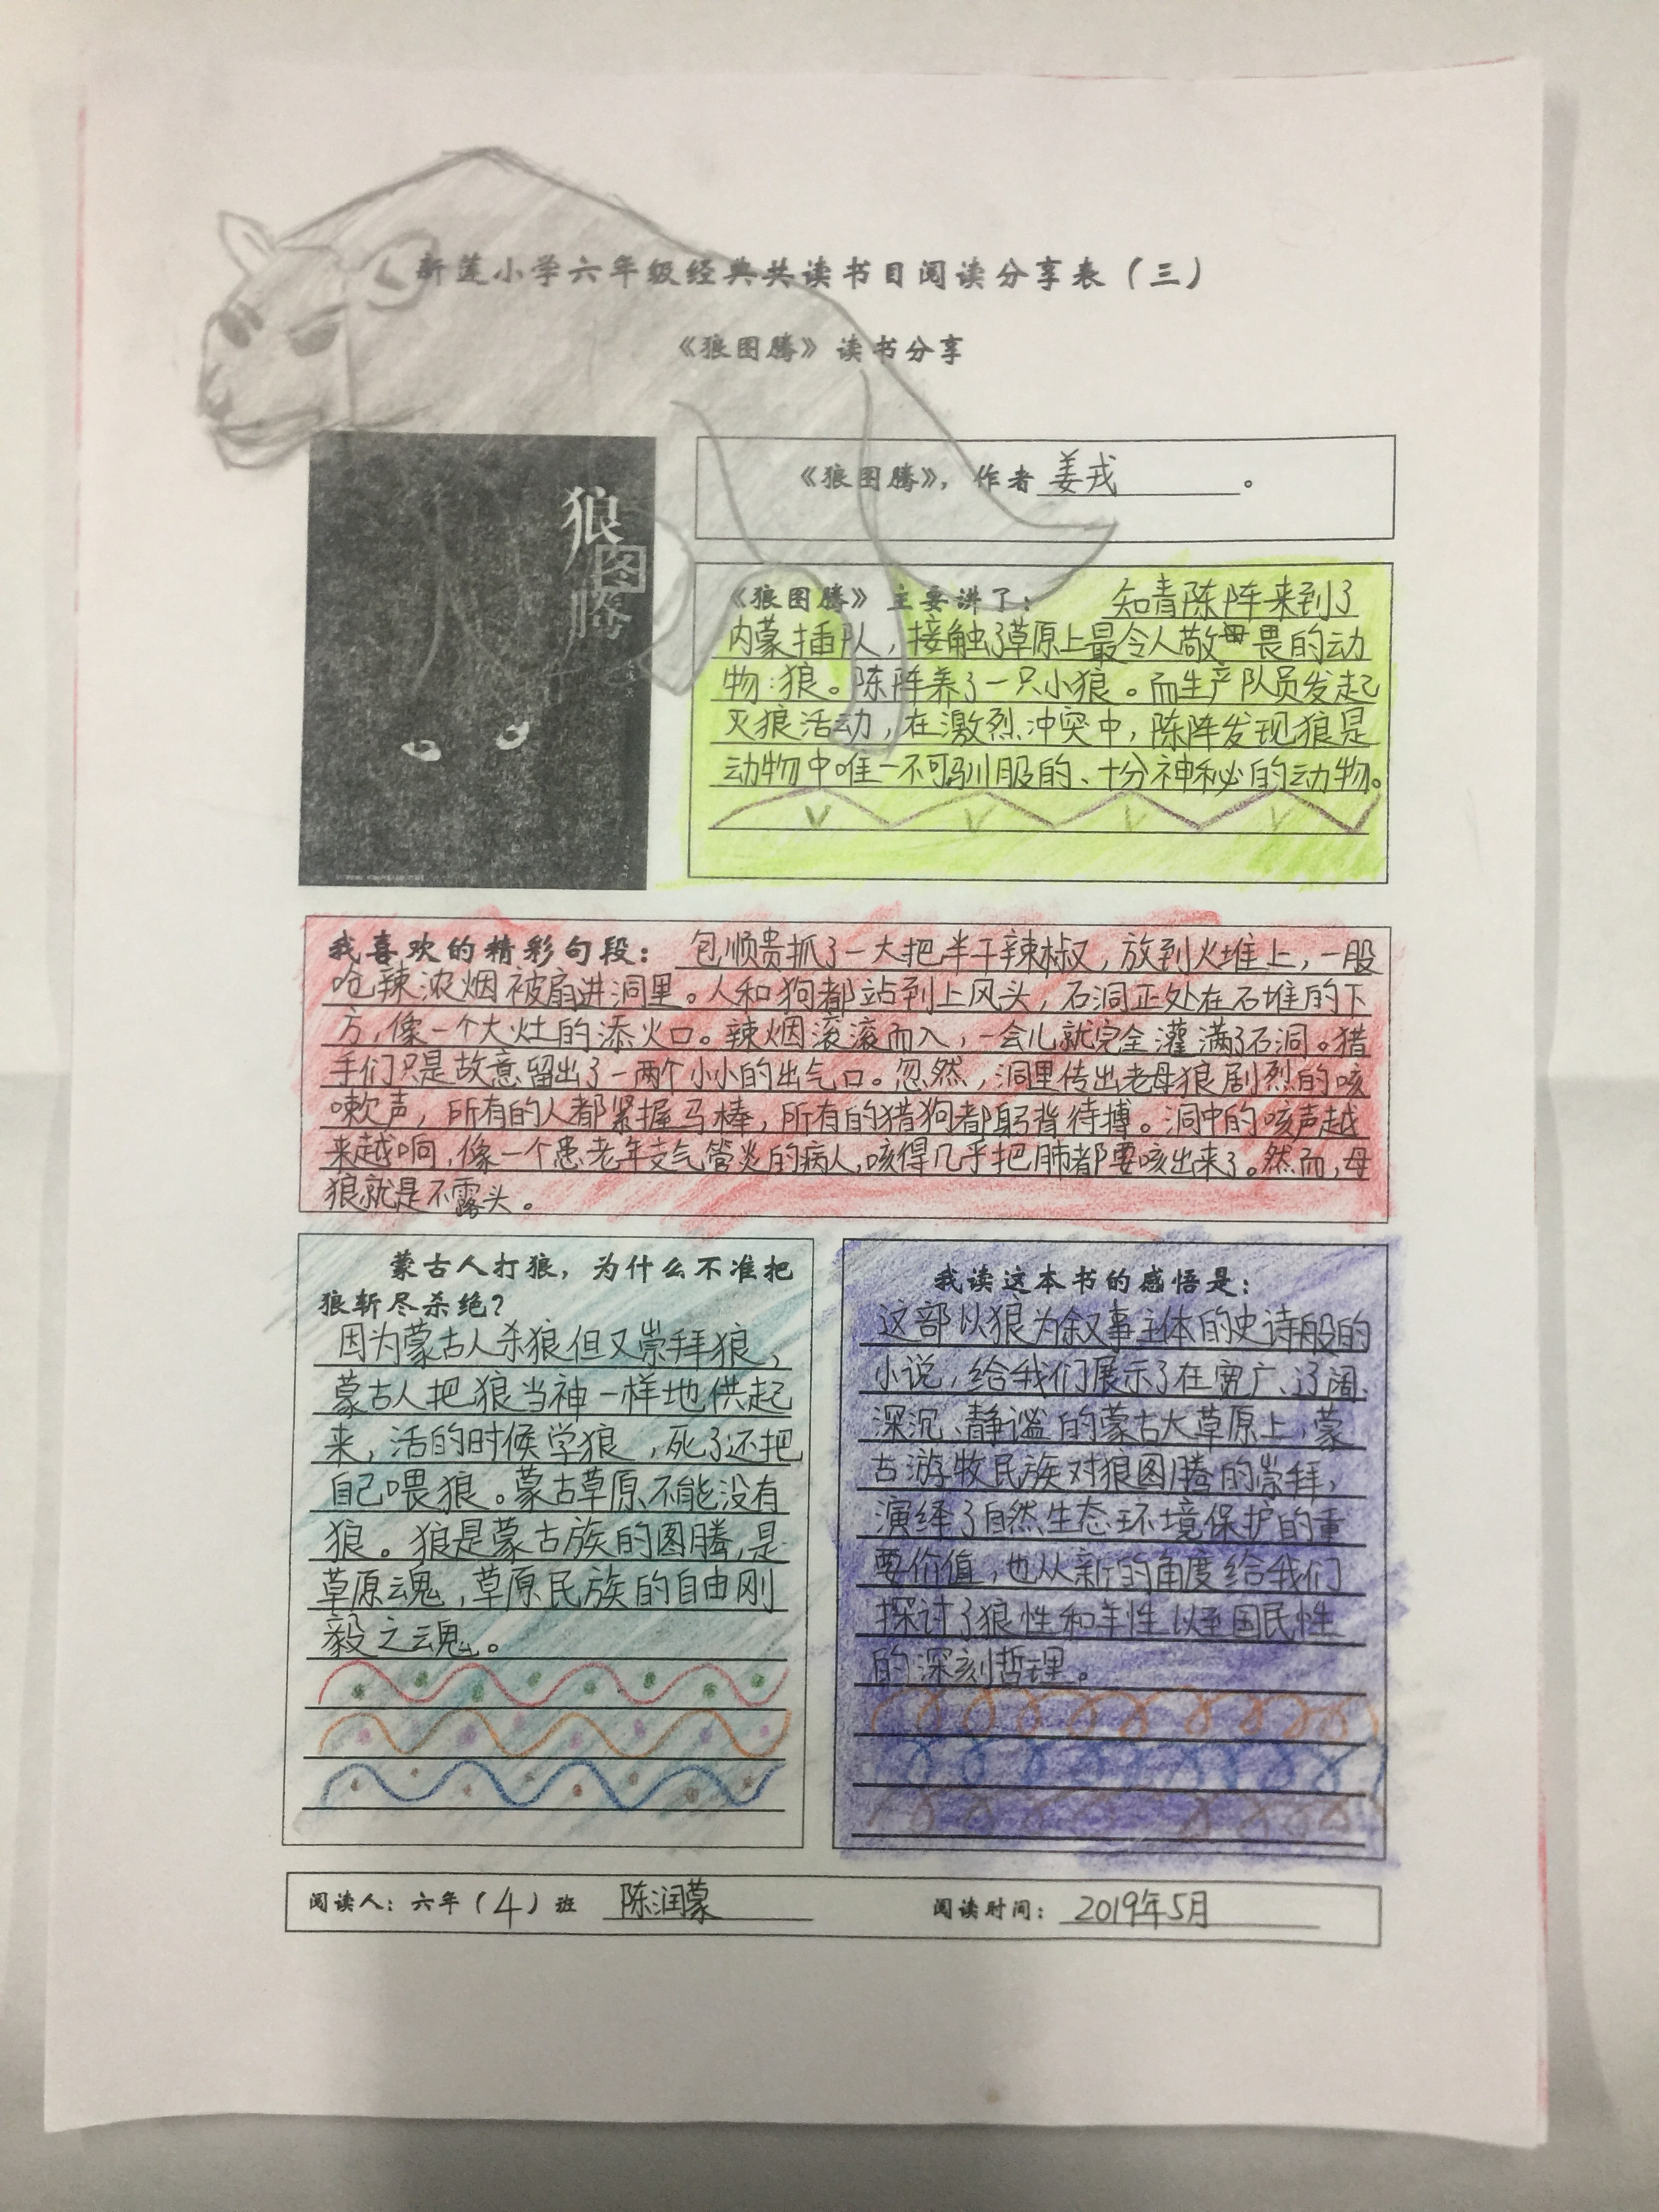 新莲小学六年级经典共读书目阅读分享表（三）
《狼图腾》读书分享
狼图腾
《狼图腾》，作者姜戎。
《狼图腾》主要讲了：知青陈阵来到了
内蒙插队，接触了草原上最令人敬畏的动
物：狼。陈阵养了一只小狼。而生产队员发起
灭狼活动，在激烈冲突中，陈阵发现狼是
动物中唯一不可驯服的、十分神秘的动物。
我喜欢的精彩句段：包顺贵抓了一大把半干辣椒，放到火堆上，一股
呛辣浓烟被扇进洞里。人和狗都站到上风头，石洞正处在石堆的下
方，像一个大灶的添火口。辣烟滚滚而入，一会儿就完全灌满了石洞。猎
手们只是故意留出了一两个小小的出气口。忽然，洞里传出老母狼剧烈的咳
嗽声，所有的人都紧握马棒，所有的猎狗都躬背待搏。洞中的咳声越
来越响，像一个患老年支气管炎的病人，咳得几乎把肺都要咳出来了。然而，母
狼就是不露头。
蒙古人打狼，为什么不准把
狼斩尽杀绝？
因为蒙古人杀狼但又崇拜狼，
蒙古人把狼当神一样地供起
来，活的时候学狼，死了还把
自己喂狼。蒙古草原不能没有
狼。狼是蒙古族的图腾，是
草原魂，草原民族的自由刚
毅之魂。
我读这本书的感悟是：
这部以狼为叙事主体的史诗般的
小说，给我们展示了在宽广、辽阔、
深沉、静谧的蒙古大草原上，蒙
古游牧民族对狼图腾的崇拜，
演绎了自然生态环境保护的重
要价值，也从新的角度给我们
探讨了狼性和羊性以至国民性
的深刻哲理。
阅读人：六年（4）班 陈润蒙 阅读时间：2019年5月